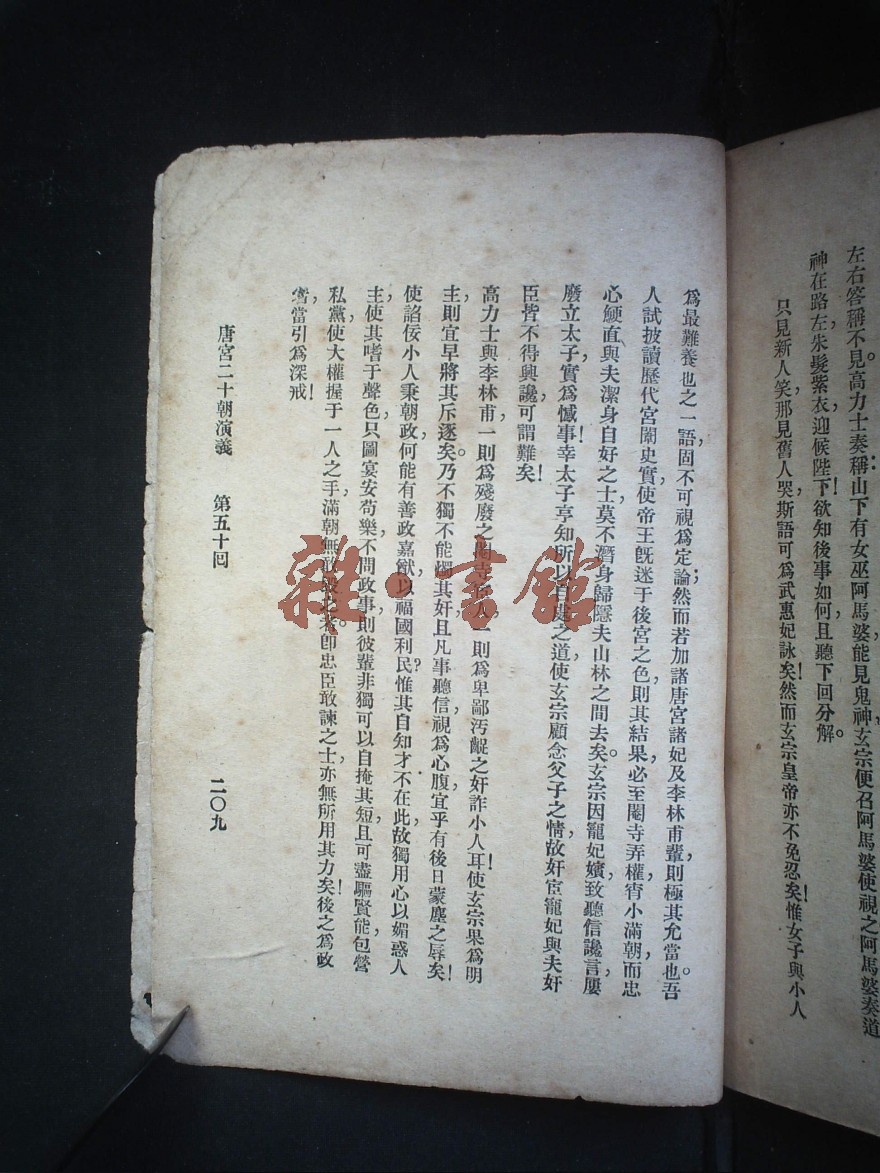 左右答稱不見。高力士奏稱：山下有女巫阿馬婆，能見鬼神，玄宗便召阿馬婆使視之，阿馬婆奏道：
神在路左，朱髮紫衣，迎候陛下！欲知後事如何，且聽下回分解。
只見新人笑，那見舊人哭，斯語可爲武惠妃詠矣！然而玄宗皇帝亦不免忍矣！惟女子與小人
爲最難養也之一語，固不可視爲定論；然而若加諸唐宮諸妃及李林甫輩，則極其允當也。吾
人試披讀歷代宮闈史實，使帝王既迷于後宮之色，則其結果必至閹寺弄權，宵小滿朝，而忠
心鯁直與夫潔身自好之士，莫不潛身歸隱夫山林之間去矣。玄宗因寵妃嬪，致聽信讒言，屢
廢立太子，實爲憾事！幸太子亨知所以自處之道，使玄宗顧念父子之情，故奸宦寵妃與夫奸
臣皆不得興讒，可謂難矣！
高力士與李林甫，一則爲殘廢之閹寺，一則爲卑鄙汚齪之奸詐小人耳，使玄宗果爲明
主，則宜早將其斥逐矣。乃不獨不能燭其奸，且凡事聽信，視爲心腹，宜乎有後日蒙塵之辱矣！
使諂佞小人秉朝政，何能有善政嘉猷，以福國利民？惟其自知才不在此，故獨用心以媚惑人
主，使其嗜于聲色，只圖宴安苟樂，不問政事，則彼輩非獨可以自掩其短，且可盡驅賢能，包營
私黨，使大權握于一人之手，滿朝無敢之者。卽忠臣敢諫之士，亦無所用其力矣！後之爲政
者，當引爲深戒！
唐宮二十朝演義　第五十回　二〇九
雜·書館